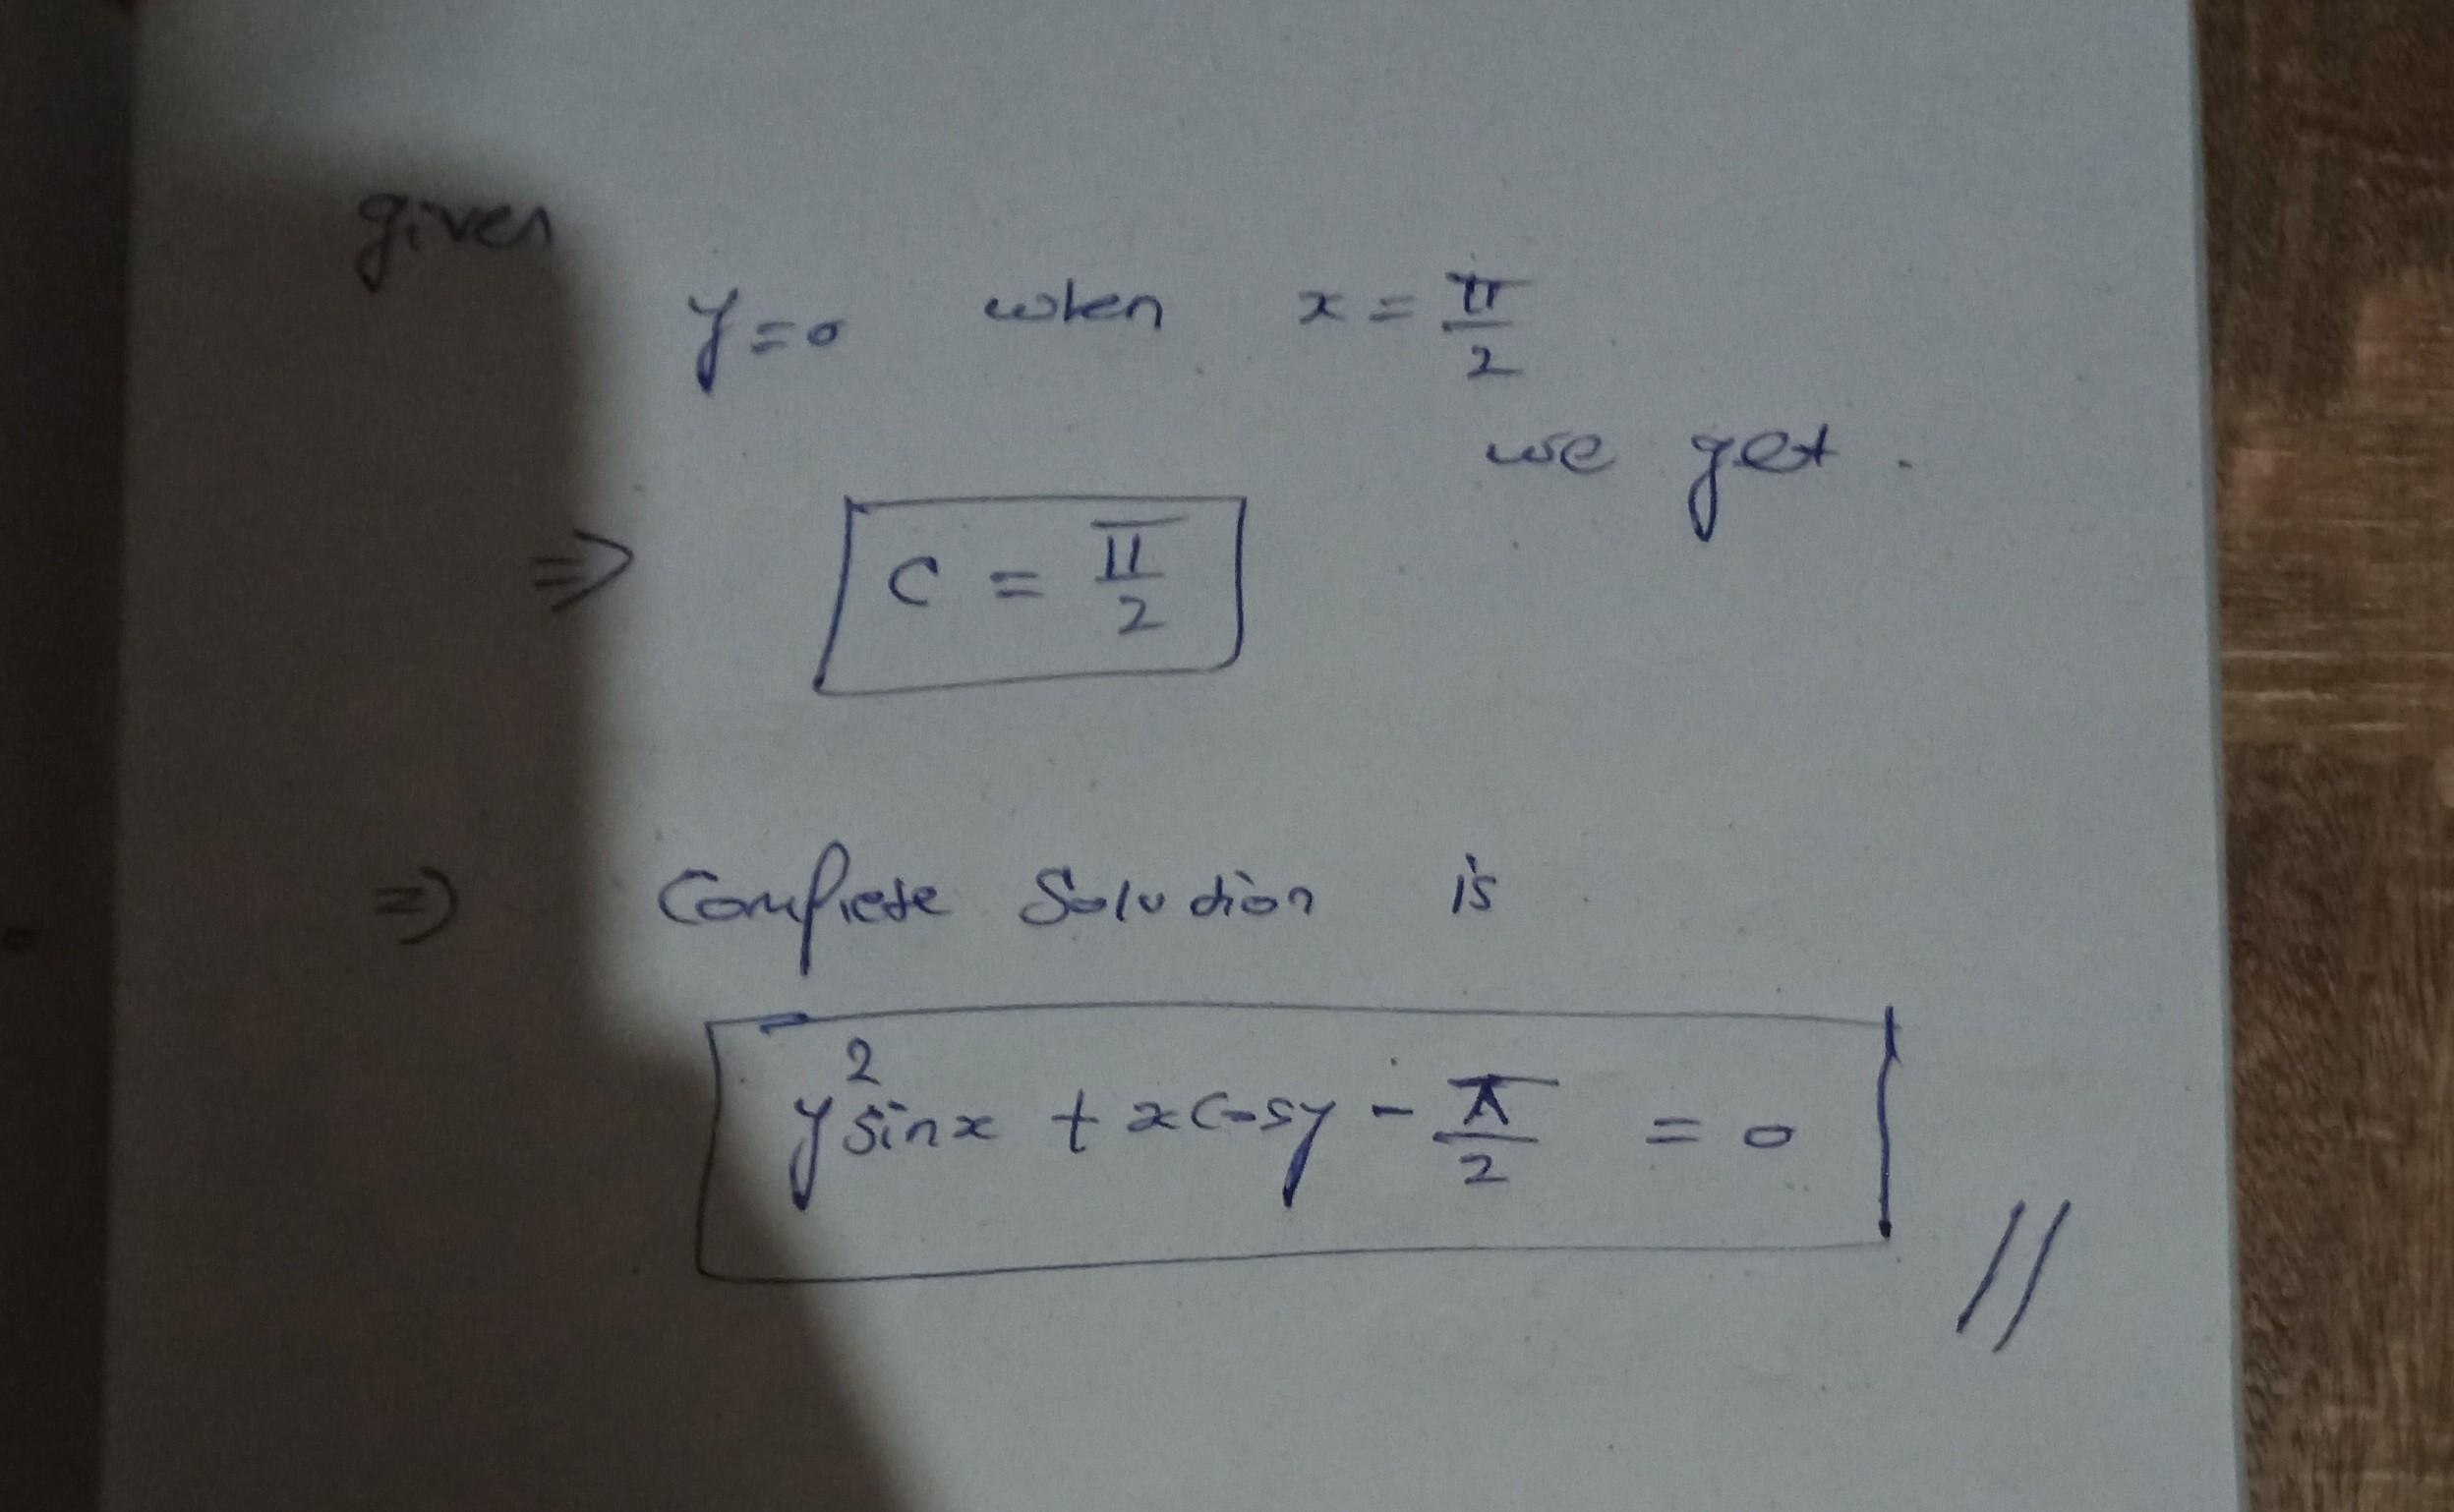 given
y = 0 when x = π/2
we get.
⇒ C = π/2
⇒ Complete Solution is
y² sin x + x cos y - π/2 = 0 //